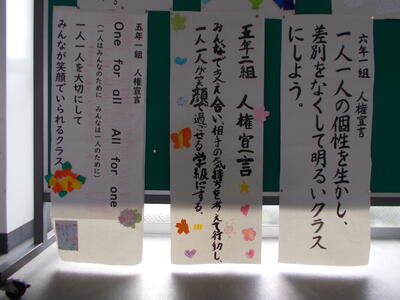 六年一組　人権宣言
一人一人の個性を生かし、
差別をなくして明るいクラス
にしよう。
五年二組　人権宣言
みんなで支え合い、相手の気持ちを考えて行動し、
一人一人が笑顔で過ごせる学級にする。
五年一組　人権宣言
One for all　All for one
（一人はみんなのために　みんなは一人のために）
一人一人を大切にして
みんなが笑顔でいられるクラス